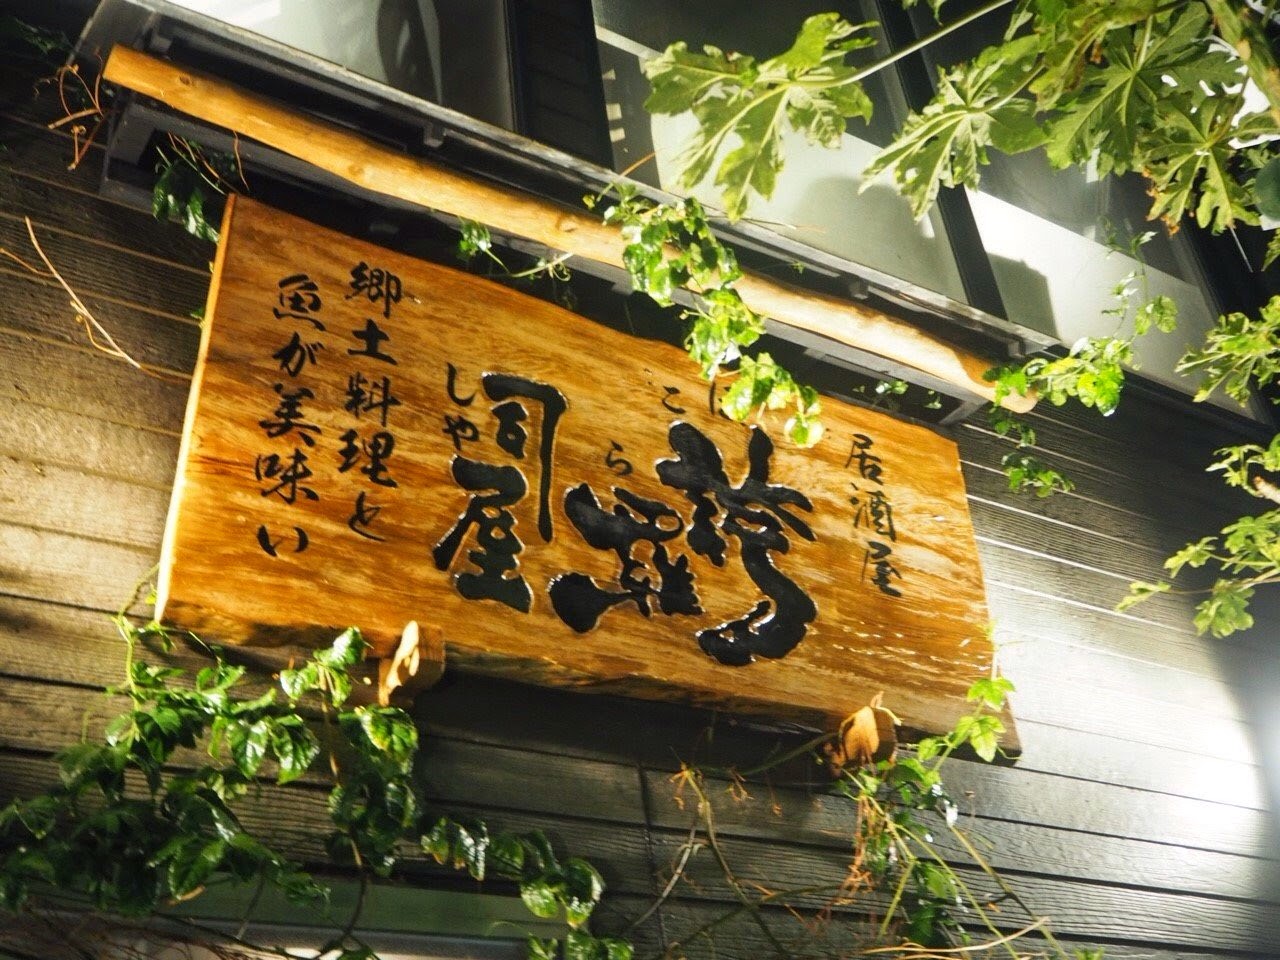 居酒屋
ほこらしや
誇羅司屋
郷土料理と
魚が美味い